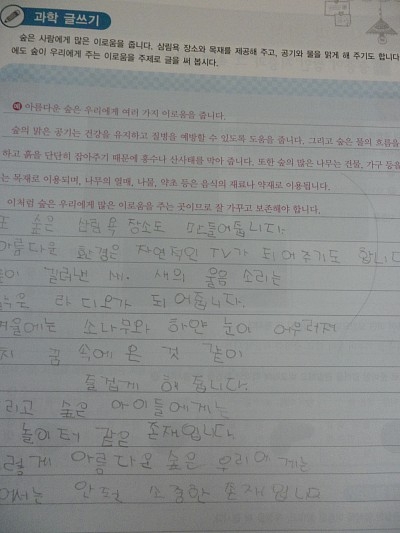 과학 글쓰기
숲은 사람에게 많은 이로움을 줍니다. 삼림욕 장소와 목재를 제공해 주고, 공기와 물을 맑게 해 주기도 합니다
에도 숲이 우리에게 주는 이로움을 주제로 글을 써 봅시다.
예 아름다운 숲은 우리에게 여러 가지 이로움을 줍니다.
숲의 맑은 공기는 건강을 유지하고 질병을 예방할 수 있도록 도움을 줍니다. 그리고 숲은 물의 흐름을
하고 흙을 단단히 잡아주기 때문에 홍수나 산사태를 막아 줍니다. 또한 숲의 많은 나무는 건물, 가구 등을
는 목재로 이용되며, 나무의 열매, 나물, 약초 등은 음식의 재료나 약재로 이용됩니다.
이처럼 숲은 우리에게 많은 이로움을 주는 곳이므로 잘 가꾸고 보존해야 합니다.
또 숲은 삼림욕 장소도 만들어줍니다.
아름다운 환경은 자연적인 TV가 되어주기도 합니다
새의 울음 소리는
라디오가 되어줍니다.
겨울에는 소나무와 하얀 눈이 어우러져
꿈 속에 온 것 같이
즐겁게 해 줍니다.
리고 숲은 아이들에게는
놀이터 같은 존재입니다.
렇게 아름다운 숲은 우리에게는
소중한 존재입니다